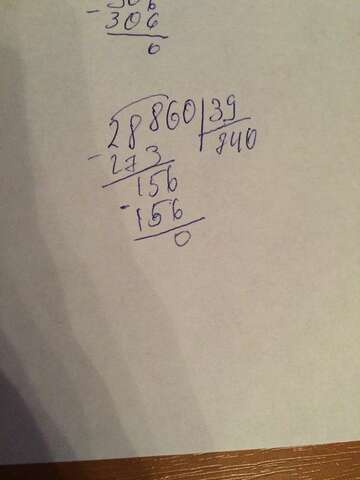 - 306
0
28860 | 39
- 273 | 740
156
- 156
0